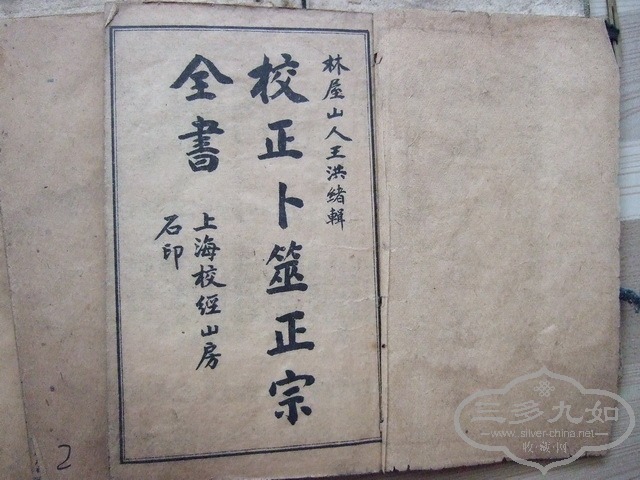 林屋山人王洪緒輯
校正卜筮正宗
全書
上海校經山房
石印
2
三多九如
www.silver-china.net
收藏网